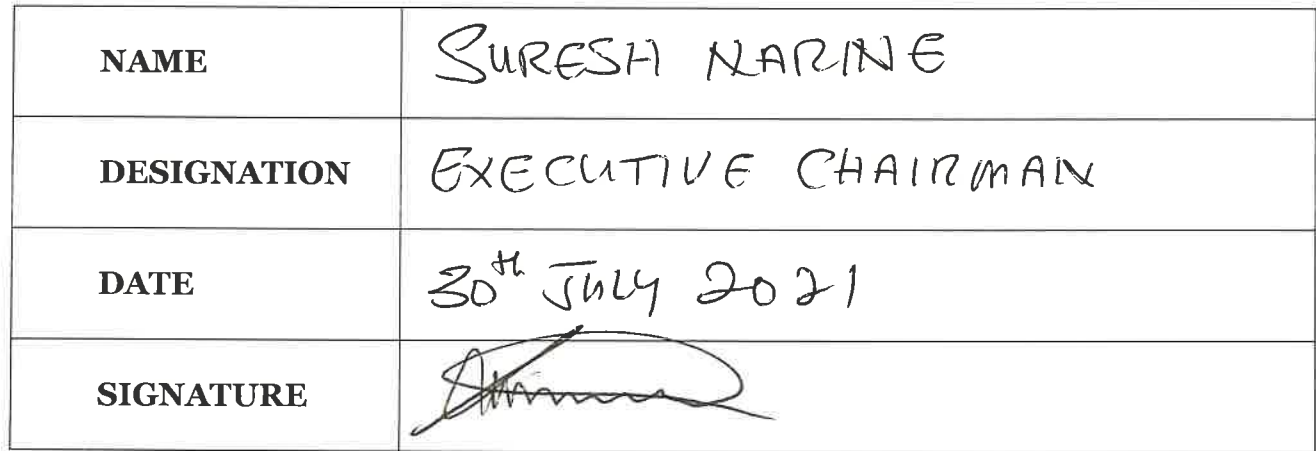 NAME SURESH NARINE
DESIGNATION EXECUTIVE CHAIRMAN
DATE 30th July 2021
SIGNATURE